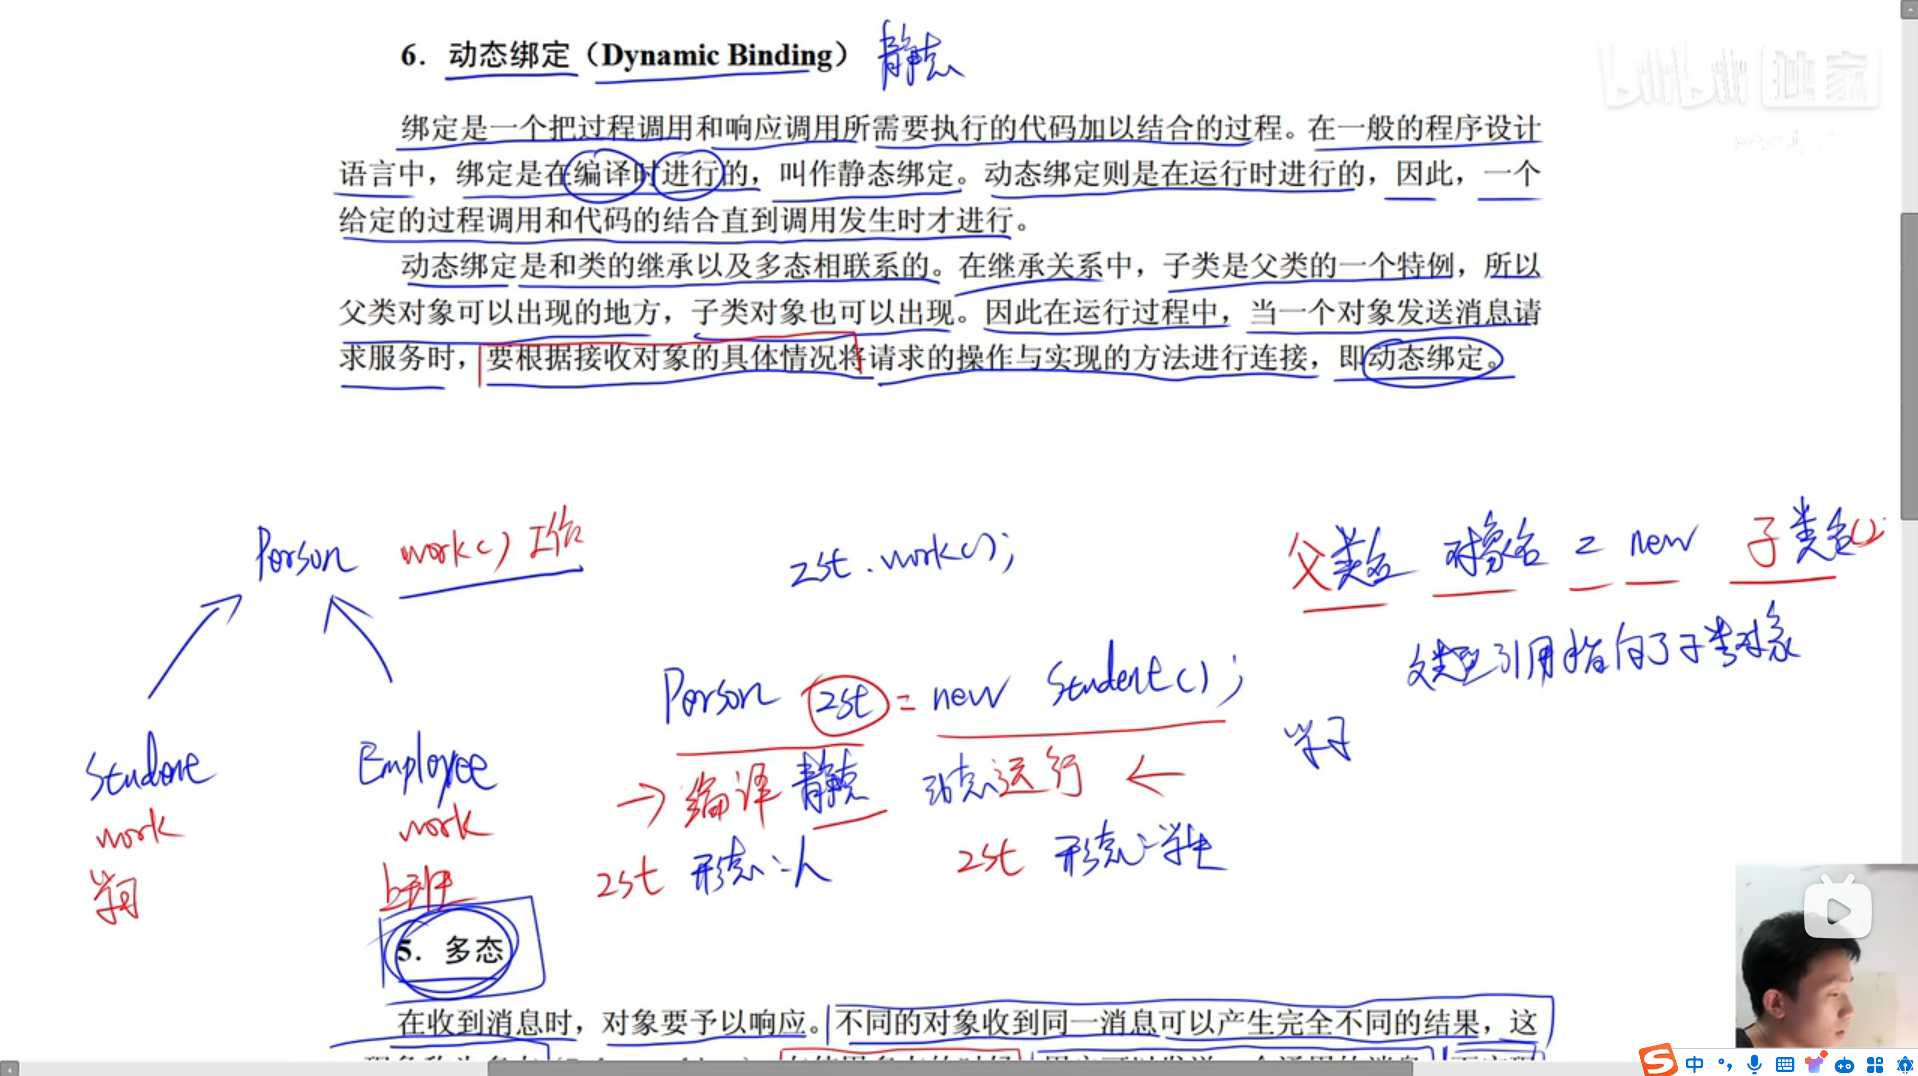 6. 动态绑定（Dynamic Binding） 静态
bilibili 独家
绑定是一个把过程调用和响应调用所需要执行的代码加以结合的过程。在一般的程序设计
语言中，绑定是在编译时进行的，叫作静态绑定。动态绑定则是在运行时进行的，因此，一个
给定的过程调用和代码的结合直到调用发生时才进行。
动态绑定是和类的继承以及多态相联系的。在继承关系中，子类是父类的一个特例，所以
父类对象可以出现的地方，子类对象也可以出现。因此在运行过程中，当一个对象发送消息请
求服务时，要根据接收对象的具体情况将请求的操作与实现的方法进行连接，即动态绑定。
Person work() 工作
zst.work();
父类名 对象名 = new 子类名();
父类型引用指向了子类对象
Person zst = new Student();
学习
Student
Employee
→ 编译 静态 动态 运行 ←
work
work
zst 形态:人
zst 形态:学生
学习
上班
5. 多态
在收到消息时，对象要予以响应。不同的对象收到同一消息可以产生完全不同的结果，这
中